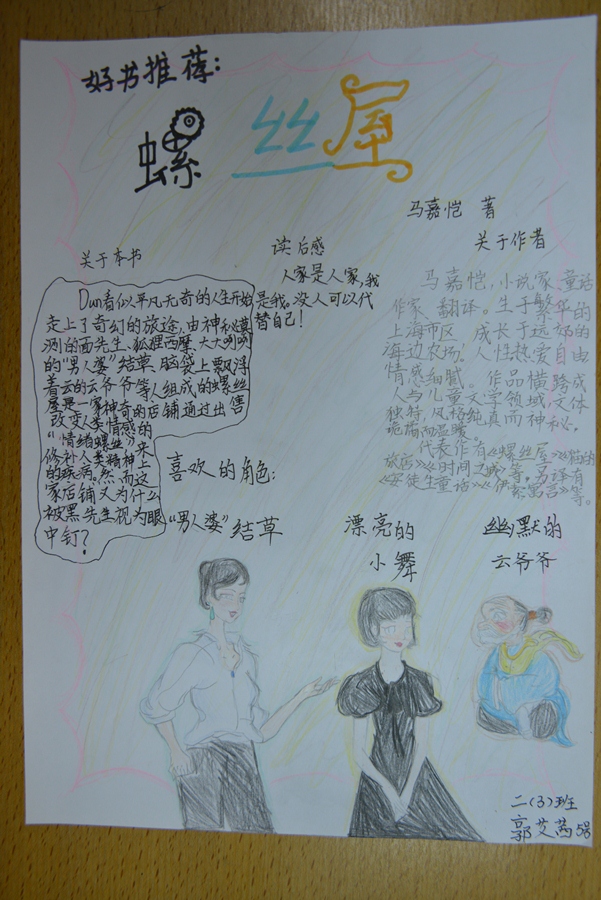 好书推荐:
螺丝屋
马嘉恺 著
关于本书
Dun看似平凡无奇的人生开始
走上了奇幻的旅途,由神秘莫
测的面先生、狐狸西摩、大大咧咧
的“男人婆”结草、脑袋上飘浮
着云的云爷爷等人组成的螺丝
屋是一家神奇的店铺通过出售
改变人类情感的
“情绪螺丝”来
修补人类精神上
的疾病。然而这
家店铺又为什么
被黑先生视为眼
中钉?
读后感
人家是人家,我
是我。没人可以代
替自己!
关于作者
马嘉恺,小说家、童话
作家、翻译。生于繁华的
上海市区,成长于远郊的
海边农场。人性热爱自由
情感细腻。作品横跨成
人与儿童文学领域,文体
独特,风格纯真而神秘。
诡谲而温暖
代表作有《螺丝屋》《猫的
旅店》《时间之城》等。另译有
《安徒生童话》《伊索寓言》等。
喜欢人的角色:
“男人婆”结草
漂亮的
小舞
幽默的
云爷爷
二(3)班
郭艾茜 5号